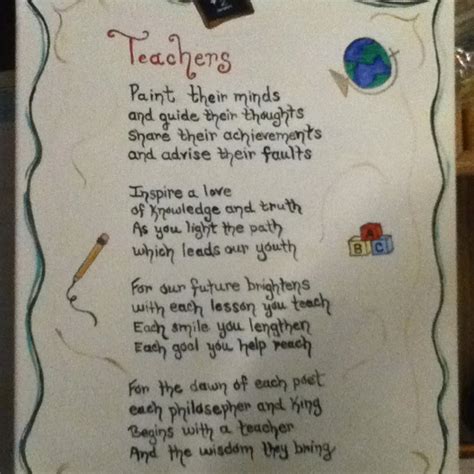 Teachers
Paint their minds
and guide their thoughts
Share their achievements
and advise their faults
Inspire a love
of Knowledge and truth
As you light the path
which leads our youth
A
B C
For our future brightens
with each lesson you teach
Each smile you lengthen
Each goal you help reach
For the dawn of each poet
each philosepher and King
Begins with a teacher
And the wisdom they bring